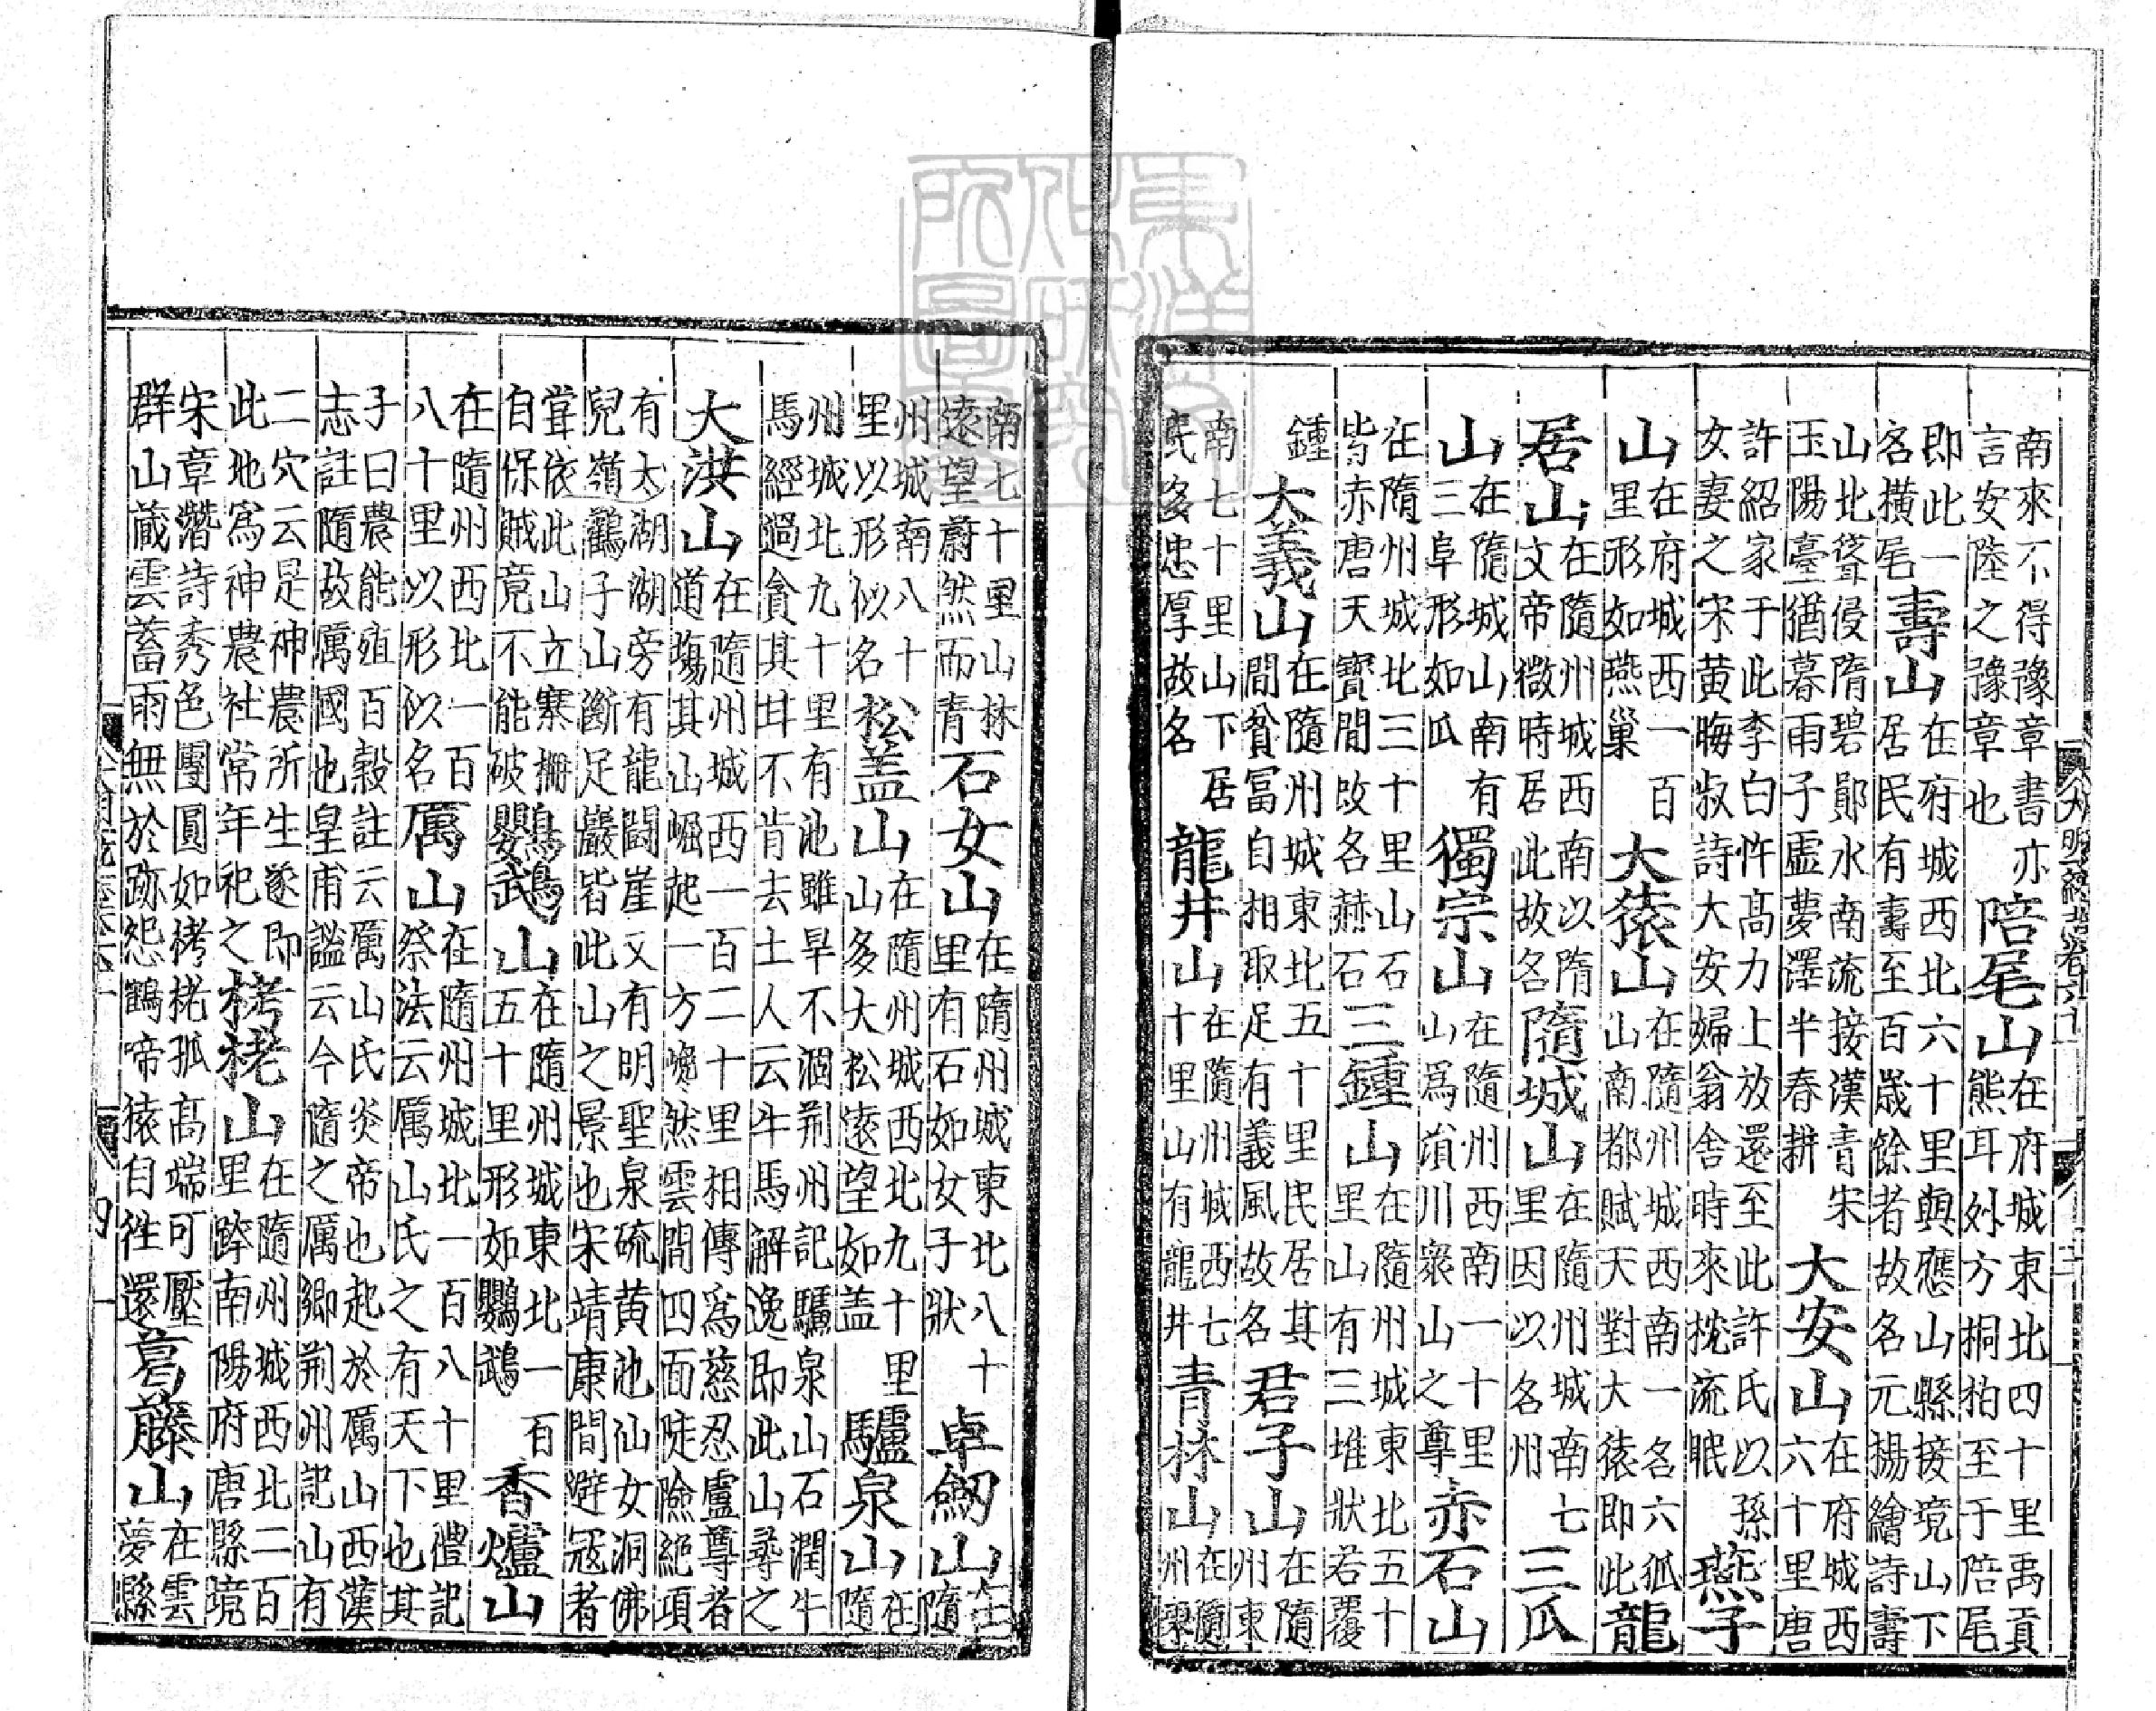 南來不得豫章書亦言安陸之豫章也陪尾山在府城東北四十里禹貢熊耳外方桐柏至于陪尾
即此一名橫尾壽山在府城西北六十里與應山縣接境山下居民有壽至百歲餘者故名元揚繪詩壽
山北聳侵隋碧鄖水南流接漢青宋玉陽臺猶暮雨子虛夢澤半春耕大安山在府城西六十里唐
許紹家于此李白忤高力士放還至此許氏以孫女妻之宋黃晦叔詩大安婦翁舍時來枕流眠燕子
山在府城西一百里形如燕巢大猿山在隨州城西南一名六狐山南都賦天對大猿即此龍
居山在隨州城西南以隋文帝微時居此故名隨城山在隨州城南七里因以名州三瓜
山在隨城山南有三阜形如瓜獨宗山在隨州西南一十里山爲溳川衆山之尊赤石山
在隋州城北三十里山石皆赤唐天寶間改名赫石三鍾山在隨州城東北五十里山有三堆狀若覆
鍾大義山在隨州城東北五十里民居其間貧富自相取足有義風故名君子山在隨州東
南七十里山下居民多忠厚故名龍井山在隨州城西七十里山有龍井青林山在隨州
南七十里山林遠望蔚然而青石女山在隋州城東北八十里有石如女子狀卓劒山在隨
州城南八十里以形似名松盖山在隨州城西北九十里山多大松遠望如盖驢泉山在隨
州城北九十里有池雖旱不涸荆州記驢泉山石潤牛馬經過貪其甘不肯去土人云牛馬解逸即此山尋之
大洪山在隨州城西一百二十里相傳爲慈忍盧尊者道塲其山崛起一方巉然雲間四面陡險絕頂
有太湖湖旁有龍鬪崖又有明聖泉硫黄池仙女洞佛兒嶺鸛子山斷足巖皆此山之景也宋靖康間避冦者
聳依此山立寨柵自保賊竟不能破鸚鵡山在隨州城東北一百五十里形如鸚鵡香爐山
在隨州西北一百八十里以形似名厲山在隨州城北一百八十里禮記祭法云厲山氏之有天下也其
子曰農能殖百穀註云厲山氏炎帝也起於厲山西漢志註隨故厲國也皇甫謐云今隨之厲鄉荆州記山有
二穴云是神農所生遂即此地爲神農社常年祀之栲栳山在隨州城西北二百里跨南陽府唐縣境
宋章潛詩秀色團圓如栲栳孤高端可壓群山藏雲蓄雨無於跡怨鶴啼猿自往還葛藤山在雲夢縣